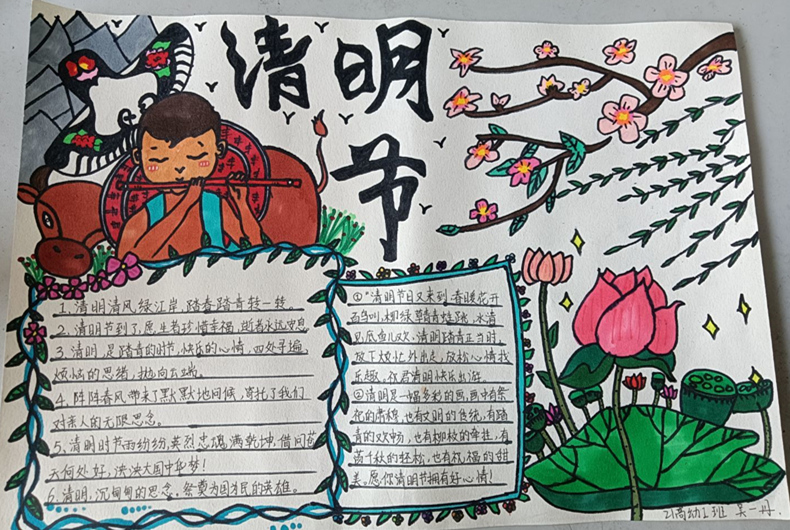 清明
节
1.清明清风绿江岸,踏春踏青转一转。
2.清明节到了,愿生者珍惜幸福,逝者永远安息
3.清明,是踏青的时节,快乐的心情,四处寻遍,
烦恼的思绪,抛向云端。
4.阵阵春风带来了默默地问候,寄托了我们
对亲人的无限思念。
5、清明时节雨纷纷,英烈忠魂满乾坤,借问
天何处好,泱泱大国中华梦!
6.清明,沉甸甸的思念,祭奠为国为民的英雄。
①“清明节日又来到,春暖花开
鸟叫,柳绿草青蛙跳,水清
见底鱼儿欢,清明踏青正当时,
放下烦忙外出走,放松心情找
乐趣,祝君清明快乐出游。
②清明是一幅多彩的画,画中有祭
祀的肃穆,也有文明的传统,有踏
青的欢畅,也有柳枝的牵挂,有
荡千秋的轻松,也有祝福的甜
美,愿你清明节拥有好心情!
21高幼1班 吴一丹